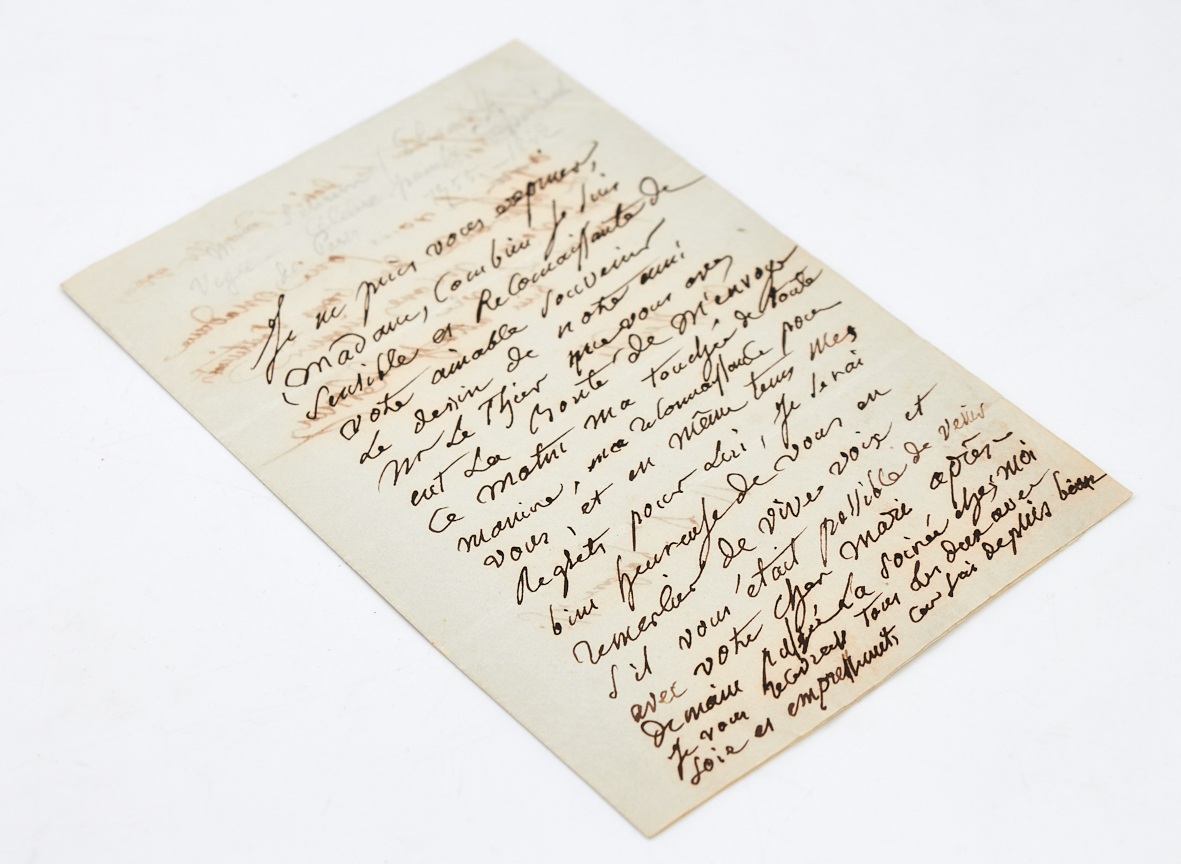 Je ne puis vous exprimer,
Madame, Combien je suis
Sensible et Reconnaissante de
votre aimable souvenir
Le dessin de notre ami
Mr Le Thier que vous avez
eut La Bonté de M'envoyer
Ce Matin ma touchée de toute
maniere, ma reconnaissance pour
vous, et en même tems mes
Regrets pour Lui, Je serai
bien heureuse de vous en
remerlier de vive voix et
S'il vous était possible de venir
avec votre cher Marie après-
Demain La soirée chez moi
Je vous tous Les deux avec
Joie et empressement, car Jai depuis bien